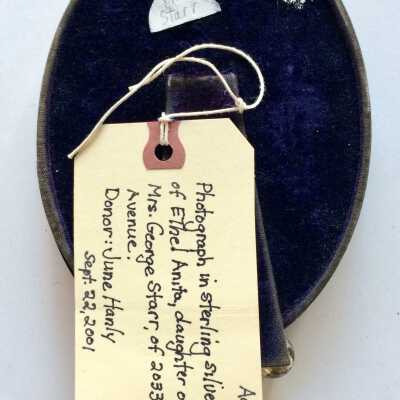 Starr
Ac
Photograph in sterling silve
of Ethel Anita, daughter o
Mrs. George Starr, of 2033
Avenue.
Donor: June Hanly
Sept. 22, 2001